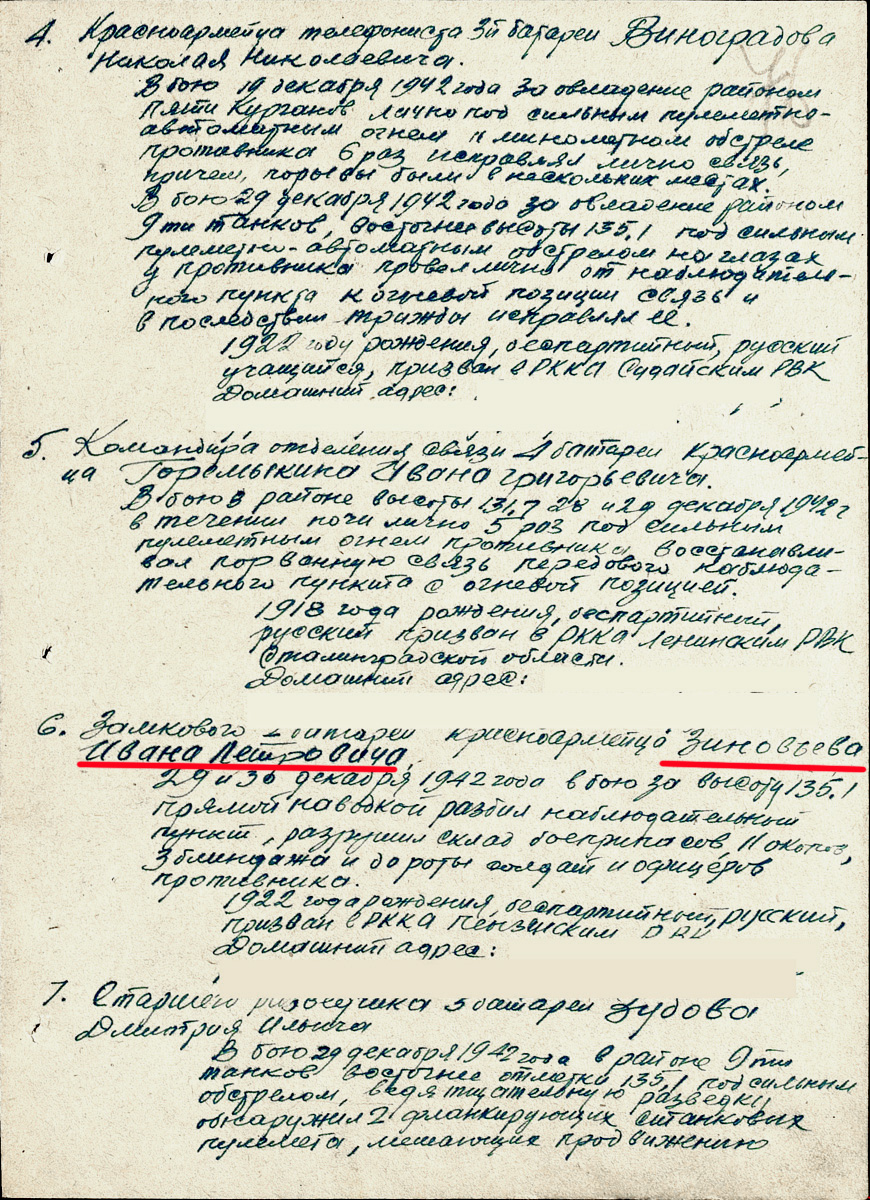 4. Красноармейца телефониста 3й батареи Виноградова
Николая Николаевича.
В бою 19 декабря 1942 года за овладение районом
Пяти Курганов лично под сильным пулеметно-
автоматным огнем и минометном обстреле
противника 6 раз исправлял лично связь,
причем, порывы были в нескольких местах.
В бою 29 декабря 1942 года за овладение районом
9ти танков, восточнее высоты 135,1 под сильным
пулеметно-автоматным обстрелом на глазах
у противника провел лично от наблюдатель-
ного пункта к огневой позиции связь и
в последствии трижды исправлял её.
1922 году рождения, беспартийный, русский
учащийся, призван в РККА Судайским РВК
Домашний адрес:
5. Командира отделения связи 4 батареи красноармей-
ца Горемыкина Ивана Григорьевича.
В бою в районе высоты 131,7 28 и 29 декабря 1942 г
в течении ночи лично 5 раз под сильным
пулеметным огнем противника восстанавли-
вал порванную связь передового наблюда-
тельного пункта с огневой позицией.
1918 года рождения, беспартийный,
русский призван в РККА Ленинским РВК
Сталинградской области.
Домашний адрес:
6. Замкового батареи красноармейца Зиновьева
Ивана Петровича
29 и 30 декабря 1942 года в бою за высоту 135.1
прямой наводкой разбил наблюдательный
пункт, разрушил склад боеприпасов 11 окопов,
3 блиндажа и до роты солдат и офицеров
противника.
1922 года рождения, беспартийный, русский,
призван в РККА Пензенским РВК
Домашний адрес:
7. Старшего разведчика 5 батареи Зудова
Дмитрия Ильича
В бою 29 декабря 1942 года в районе 9ти
танков восточнее отметки 135,1 под сильным
обстрелом, ведя тщательную разведку
обнаружил 2 фланкирующих станковых
пулемета, мешающих продвижению